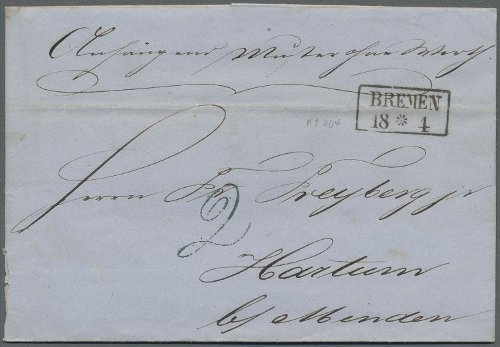 Anhängend Muster ohne Werth
BREMEN
18 * 4
Herrn Fr. Freyberg jr
2
Hartum
b/ Minden